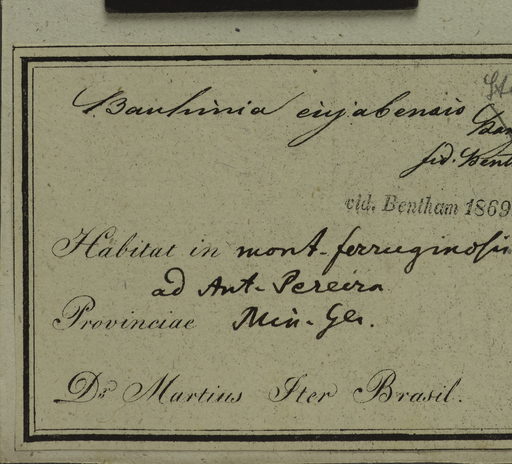 Bauhinia cujabensis
fid. Benth
vid. Bentham 1869
Habitat in mont. ferruginosis
ad Ant. Pereira
Provinciae Min. Ger.
Dr Martius Iter Brasil.